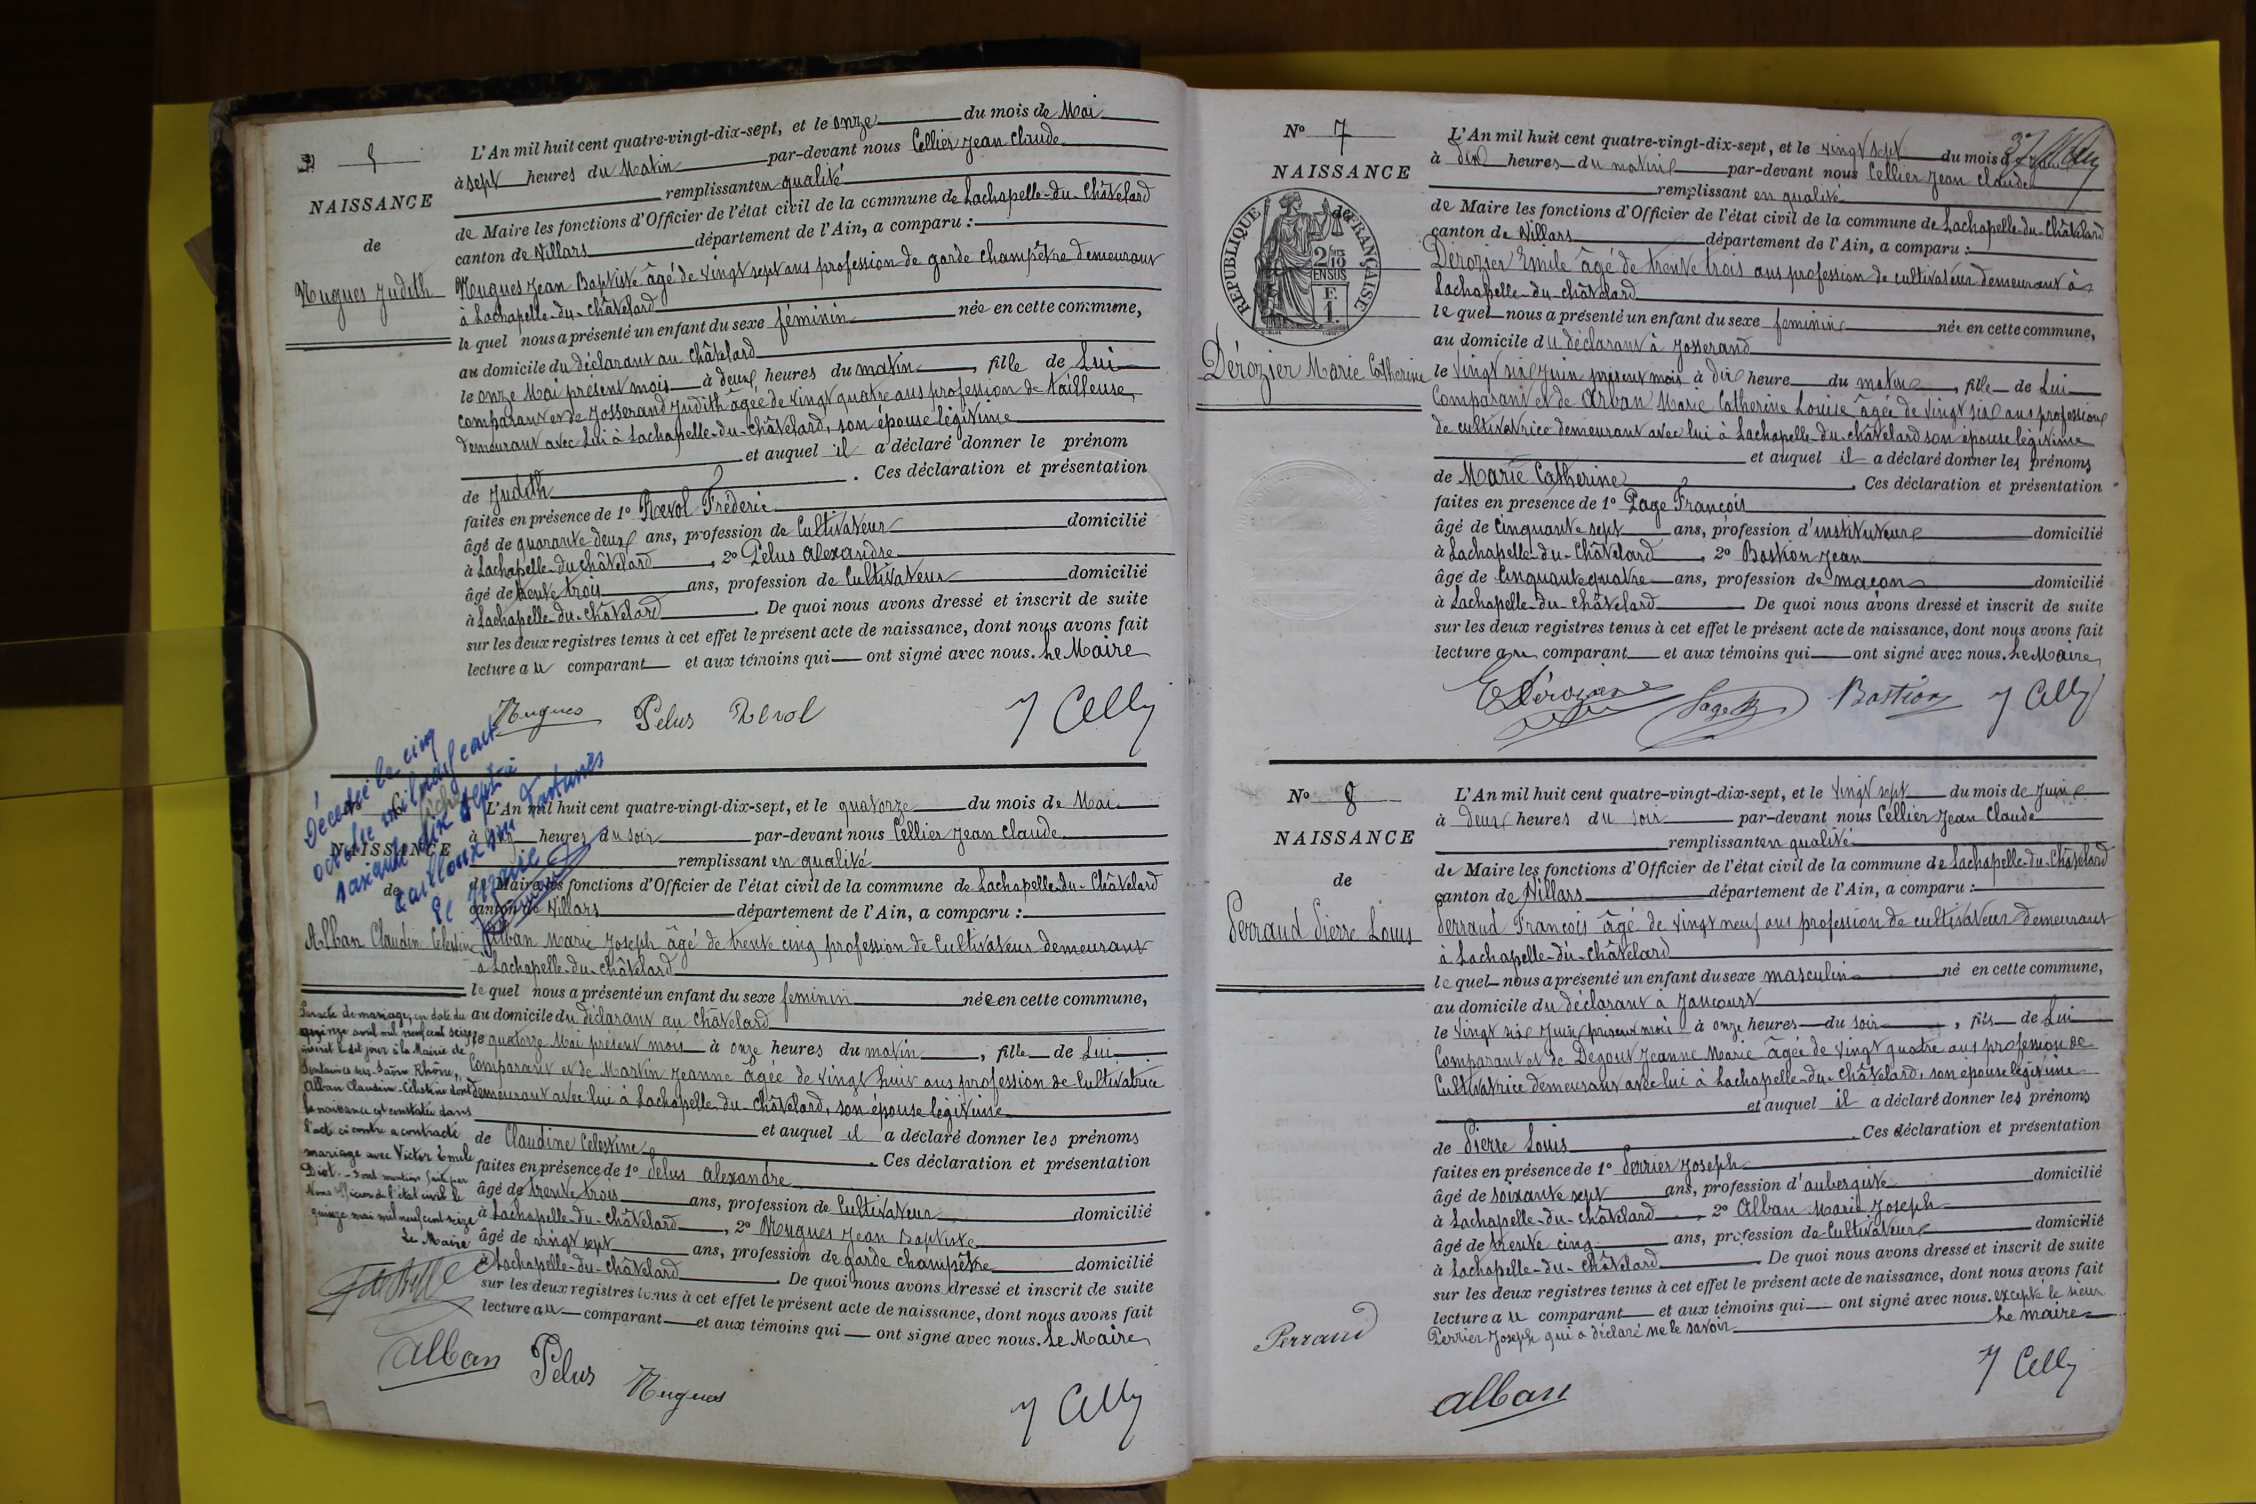 5
NAISSANCE
de
Hugues Judith
L'An mil huit cent quatre-vingt-dix-sept, et le onze du mois de Mai
à sept heures du Matin par-devant nous Cellier Jean Claude
remplissant en qualité
de Maire les fonctions d'Officier de l'état civil de la commune de Lachapelle-du-Châtelard
canton de Villars département de l'Ain, a comparu :
Hugues Jean Baptiste âgé de vingt sept ans profession de garde champêtre demeurant
à Lachapelle-du-Châtelard
le quel nous a présenté un enfant du sexe féminin née en cette commune,
au domicile du déclarant au Châtelard
le onze Mai présent mois à deux heures du matin, fille de Lui
comparant et de Josserand Judith âgée de vingt quatre ans profession de tailleuse
demeurant avec lui à Lachapelle-du-Châtelard, son épouse légitime
et auquel il a déclaré donner le prénom
de Judith. Ces déclaration et présentation
faites en présence de 1° Revol Fréderic
âgé de quarante deux ans, profession de Cultivateur domicilié
à Lachapelle-du-Châtelard, 2° Pelus Alexandre
âgé de trente trois ans, profession de Cultivateur domicilié
à Lachapelle-du-Châtelard. De quoi nous avons dressé et inscrit de suite
sur les deux registres tenus à cet effet le présent acte de naissance, dont nous avons fait
lecture au comparant et aux témoins qui ont signé avec nous. Le Maire
Hugues Pelus Revol J Celly
Décédée le cinq
octobre mil neuf cent
soixante dix sept à
Cailloux sur Fontaines
le
NAISSANCE
de
Alban Claudin Celestine
Par acte de mariage, en date du
quinze avril mil neuf cent seize
inscrit le dit jour à la Mairie de
Fontaines sur Saône Rhône,
Alban Claudin-Célestine dont
la naissance est constatée dans
l'acte ci contre a contracté
mariage avec Victor Emile
Diot. - Dont mention faite par
Nous officier de l'état civil le
quinze mai mil neuf cent seize
Le Maire
L'An mil huit cent quatre-vingt-dix-sept, et le quatorze du mois de Mai
à heures du soir par-devant nous Cellier Jean Claude
remplissant en qualité
de Maire les fonctions d'Officier de l'état civil de la commune de Lachapelle-du-Châtelard
canton de Villars département de l'Ain, a comparu :
Alban Marie Joseph âgé de trente cinq profession de Cultivateur demeurant
à Lachapelle-du-Châtelard
le quel nous a présenté un enfant du sexe feminin née en cette commune,
au domicile du déclarant au Châtelard
le quatorze Mai présent mois à onze heures du matin, fille de Lui
Comparant et de Martin Jeanne âgée de vingt huit ans profession de Cultivatrice
demeurant avec lui à Lachapelle-du-Châtelard, son épouse légitime
et auquel il a déclaré donner les prénoms
de Claudine Celestine. Ces déclaration et présentation
faites en présence de 1° Pelus Alexandre
âgé de trente trois ans, profession de Cultivateur domicilié
à Lachapelle-du-Châtelard, 2° Hugues Jean Baptiste
âgé de vingt sept ans, profession de garde champêtre domicilié
à Lachapelle-du-Châtelard. De quoi nous avons dressé et inscrit de suite
sur les deux registres tenus à cet effet le présent acte de naissance, dont nous avons fait
lecture au comparant et aux témoins qui ont signé avec nous. Le Maire
Alban Pelus Hugues J Celly
N° 7
NAISSANCE
de
RÉPUBLIQUE FRANÇAISE
2/10 EN SUS
F. 1.
Dérozier Marie Catherine
L'An mil huit cent quatre-vingt-dix-sept, et le vingt sept du mois d
à dix heures du matin par-devant nous Cellier Jean Claude
remplissant en qualité
de Maire les fonctions d'Officier de l'état civil de la commune de Lachapelle-du-Châtelard
canton de Villars département de l'Ain, a comparu :
Dérozier Emile âgé de trente trois ans profession de cultivateur demeurant à
Lachapelle-du-Châtelard
le quel nous a présenté un enfant du sexe feminin née en cette commune,
au domicile du déclarant à Josserand
le vingt six Juin présent mois à dix heure du matin, fille de Lui
Comparant et de Arban Marie Catherine Louise âgée de vingt six ans profession
de cultivatrice demeurant avec lui à Lachapelle-du-Châtelard son épouse légitime
et auquel il a déclaré donner les prénoms
de Marie Catherine. Ces déclaration et présentation
faites en presence de 1° Page François
âgé de cinquante sept ans, profession d'instituteur domicilié
à Lachapelle-du-Châtelard, 2° Bastion Jean
âgé de Cinquante quatre ans, profession de maçon domicilié
à Lachapelle-du-Châtelard. De quoi nous avons dressé et inscrit de suite
sur les deux registres tenus à cet effet le présent acte de naissance, dont nous avons fait
lecture au comparant et aux témoins qui ont signé avec nous. Le Maire
E Dérozier Page Bastion J Celly
N° 8
NAISSANCE
de
Perraud Pierre Louis
L'An mil huit cent quatre-vingt-dix-sept, et le vingt sept du mois de Juin
à deux heures du soir par-devant nous Cellier Jean Claude
remplissant en qualité
de Maire les fonctions d'Officier de l'état civil de la commune de Lachapelle-du-Châtelard
canton de Villars département de l'Ain, a comparu :
Perraud François âgé de vingt neuf ans profession de cultivateur demeurant
à Lachapelle-du-Châtelard
le quel nous a présenté un enfant du sexe masculin né en cette commune,
au domicile du déclarant à Jancourt
le vingt six Juin présent moi à onze heures du soir, fils de Lui
Comparant et de Degout Jeanne Marie âgée de vingt quatre ans profession de
Cultivatrice demeurant avec lui à Lachapelle-du-Châtelard, son épouse légitime
et auquel il a déclaré donner les prénoms
de Pierre Louis. Ces déclaration et présentation
faites en présence de 1° Perrier Joseph
âgé de soixante sept ans, profession d'aubergiste domicilié
à Lachapelle-du-Châtelard, 2° Alban Marie Joseph
âgé de trente cinq ans, profession de Cultivateur domicilié
à Lachapelle-du-Châtelard. De quoi nous avons dressé et inscrit de suite
sur les deux registres tenus à cet effet le présent acte de naissance, dont nous avons fait
lecture au comparant et aux témoins qui ont signé avec nous. excepté le sieur
Perrier Joseph qui a déclaré ne le savoir Le maire
Perraud
Alban J Celly